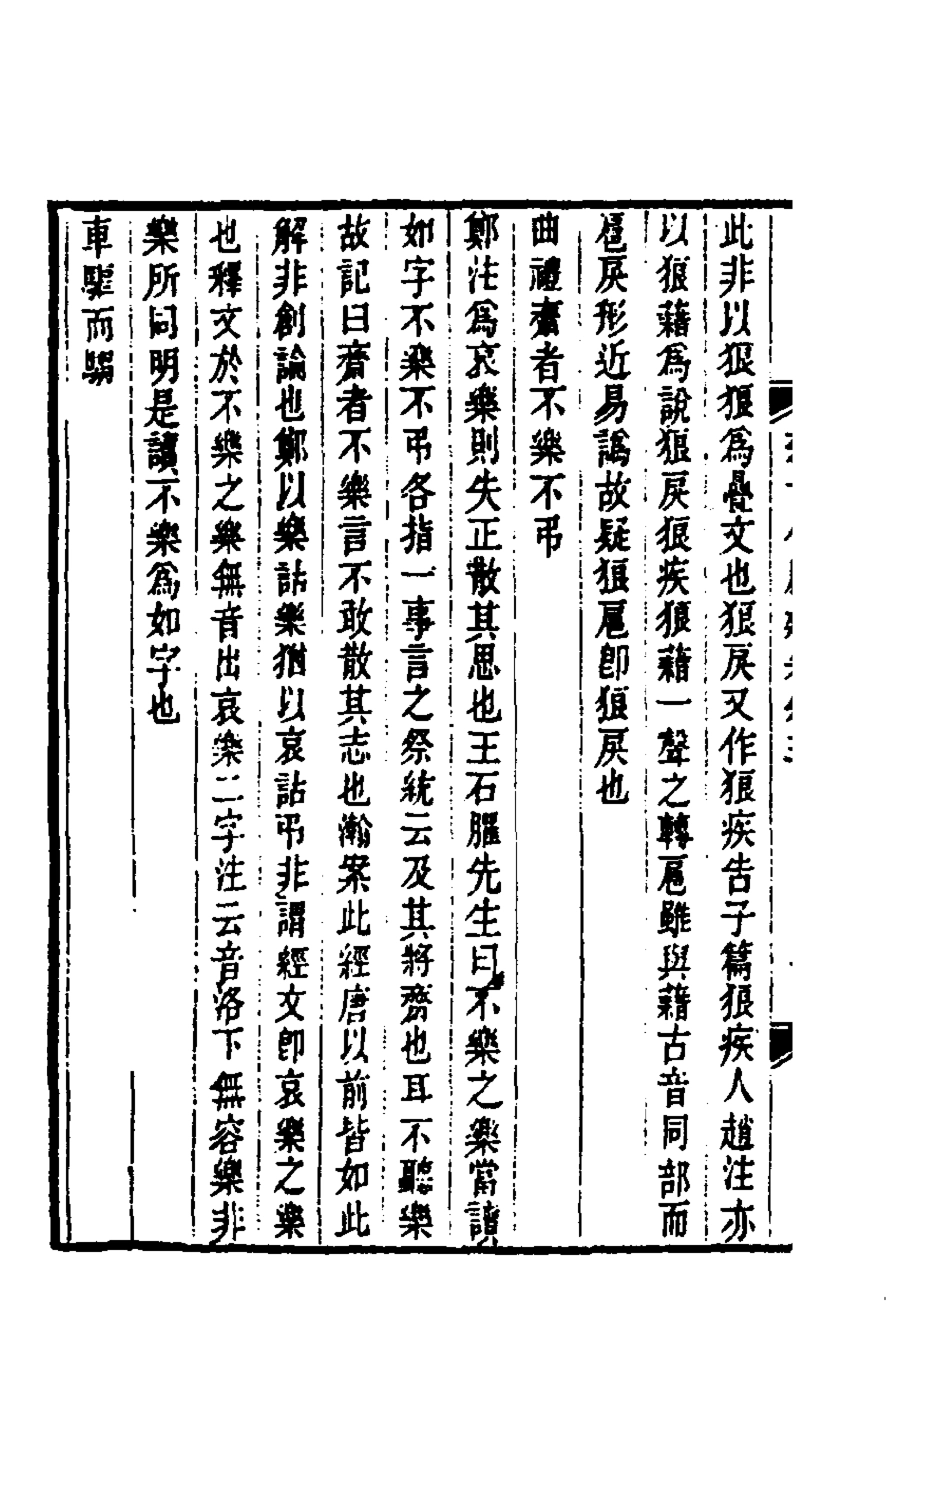 此非以狠狠爲疊文也狠戾又作狼疾告子篇狼疾人趙注亦
以狼藉爲說狼戾狼疾狼藉一聲之轉扈雖與藉古音同部而
扈戾形近易譌故疑狼扈卽狼戾也
曲禮齊者不樂不弔
鄭注爲哀樂則失正散其思也王石臞先生曰不樂之樂當讀
如字不樂不弔各指一事言之祭統云及其將齊也耳不聽樂
故記曰齊者不樂言不敢散其志也瀚案此經唐以前皆如此
解非創論也鄭以樂詁樂猶以哀詁弔非謂經文卽哀樂之樂
也釋文於不樂之樂無音出哀樂二字注云音洛下無容樂非
樂所同明是讀不樂爲如字也
車驅而騶